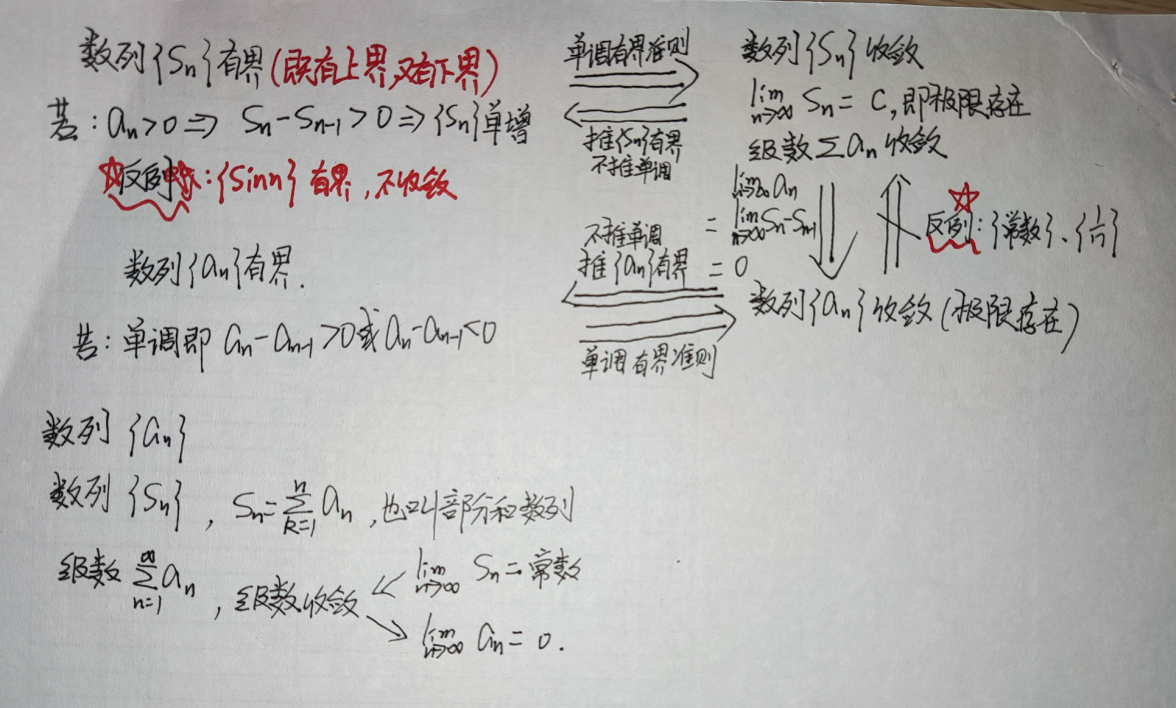 数列{Sn}有界(既有上界,又有下界)
若：an>0 ⇒ Sn-Sn-1>0 ⇒ {Sn}单增
反例：{Sinn}有界,不收敛
单调有界准则
推{Sn}有界
不推单调
数列{Sn}收敛
lim n→∞ Sn = C,即极限存在
级数∑an收敛
lim n→∞ an
= lim n→∞ Sn-Sn-1
= 0
反列：{常数}、{1/n}
数列{an}有界.
若：单调即 an-an-1>0或an-an-1<0
不推单调
推{an}有界
单调有界准则
数列{an}收敛(极限存在)
数列{an}
数列{Sn}, Sn=∑(k=1→n) an,也叫部分和数列
级数∑(n=1→∞) an,级数收敛
lim n→∞ Sn=常数
lim n→∞ an=0.